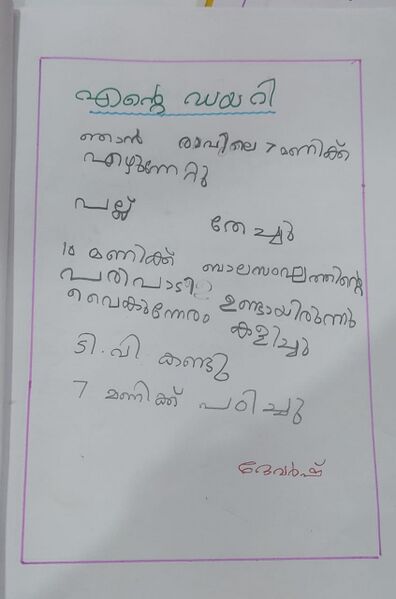 എന്റെ ഡയറി
ഞാൻ രാവിലെ 7 മണിക്ക്
എഴുന്നേറ്റു
പല്ല് തേച്ചു
10 മണിക്ക് ബാലസംഘത്തിന്റെ
പരിപാടി ഉണ്ടായിരുന്നു
വൈകുന്നേരം കളിച്ചു
ടി.വി കണ്ടു
7 മണിക്ക് പഠിച്ചു
ദേവർഷ്